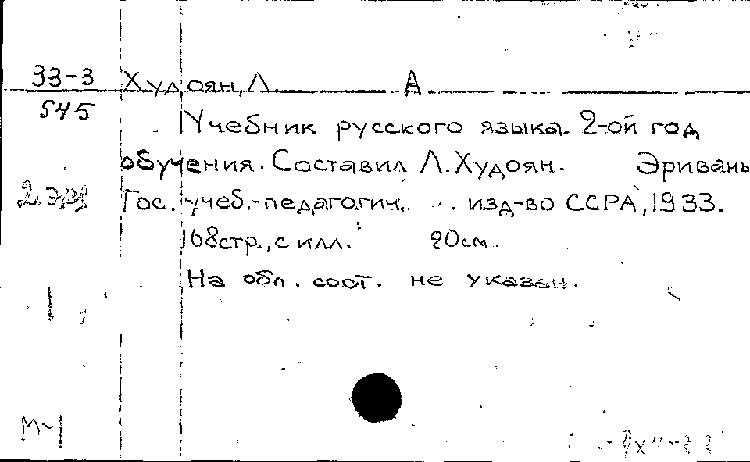 33-3 Худоян, Л. А
545
Учебник русского языка. 2-ой год
обучения. Составил Л. Худоян. Эривань
Гос. учеб.-педагогич. изд-во ССРА, 1933.
168 стр., с илл. 20 см.
На обл. сост. не указан.
М-1